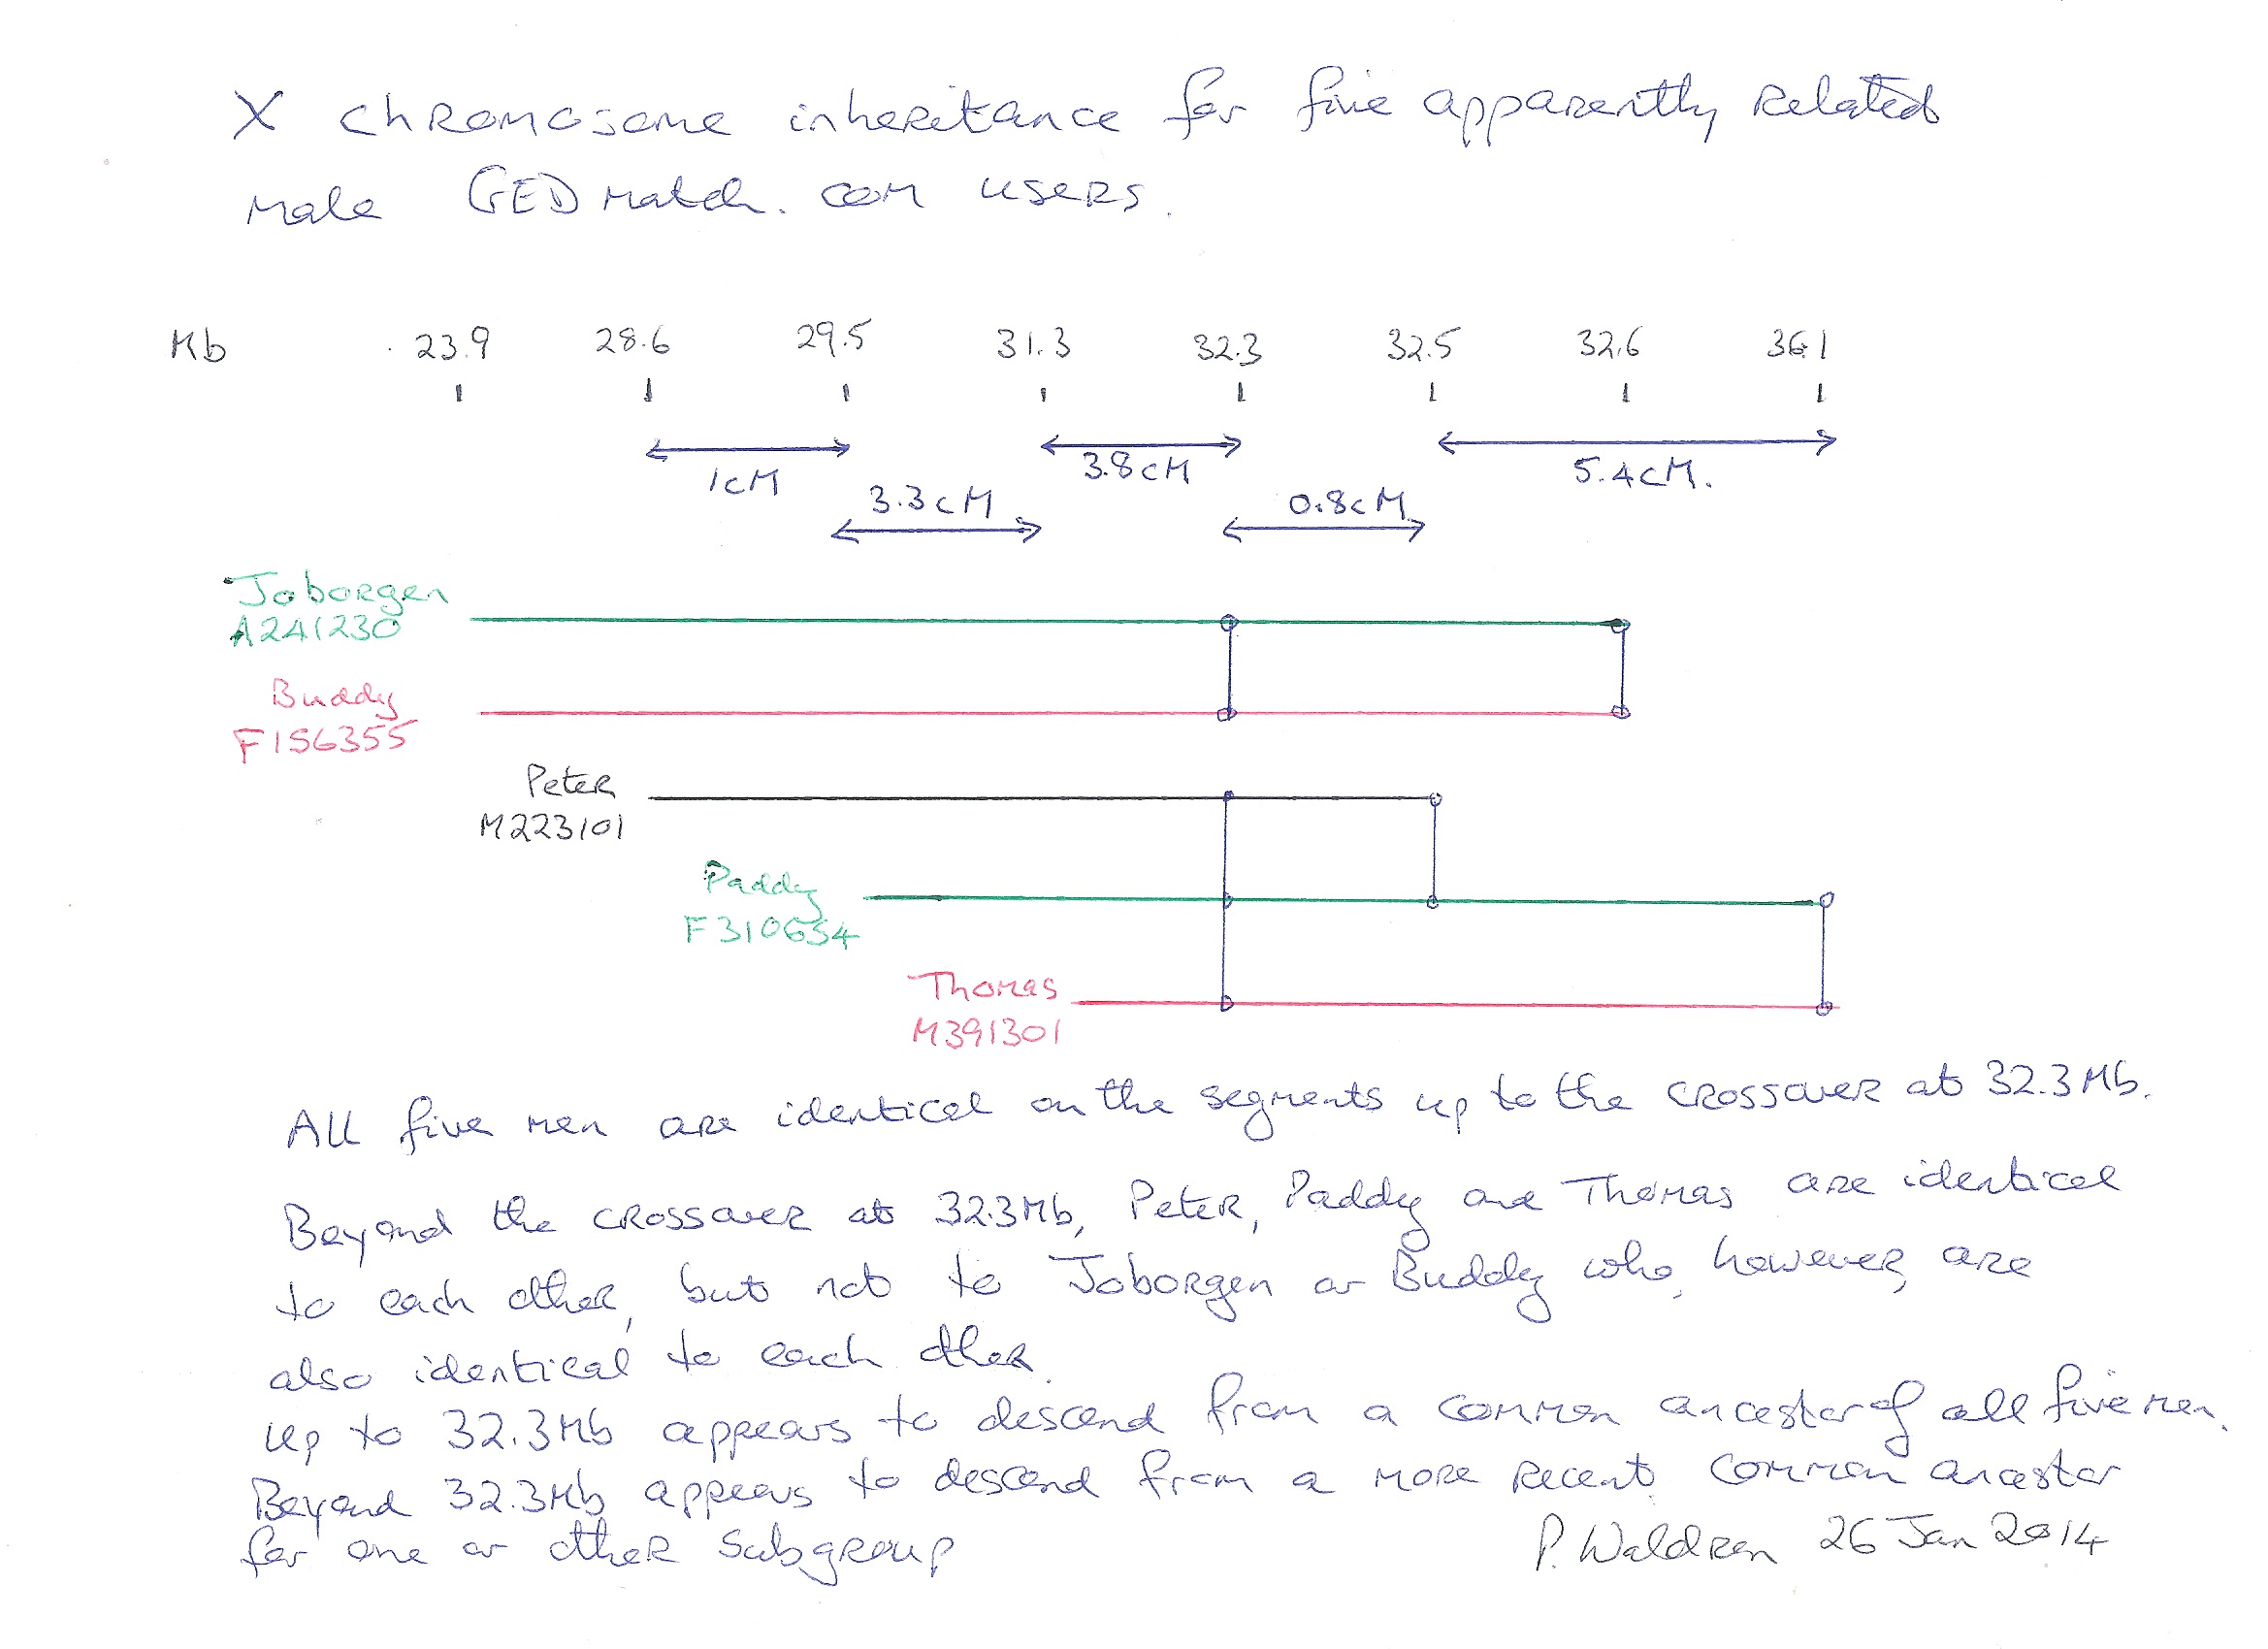 X chromosome inheritance for five apparently related
male GEDmatch.com users.
Mb 23.9 28.6 29.5 31.3 32.3 32.5 32.6 36.1
1cM 3.3cM 3.8cM 0.8cM 5.4cM.
Joborgen
A241230
Buddy
F156355
Peter
M223101
Paddy
F310654
Thomas
M391301
All five men are identical on the segments up to the crossover at 32.3Mb.
Beyond the crossover at 32.3Mb, Peter, Paddy and Thomas are identical
to each other, but not to Joborgen or Buddy who, however, are
also identical to each other.
Up to 32.3Mb appears to descend from a common ancestor of all five men.
Beyond 32.3Mb appears to descend from a more recent common ancestor
for one or other subgroup
P. Waldron 26 Jan 2014